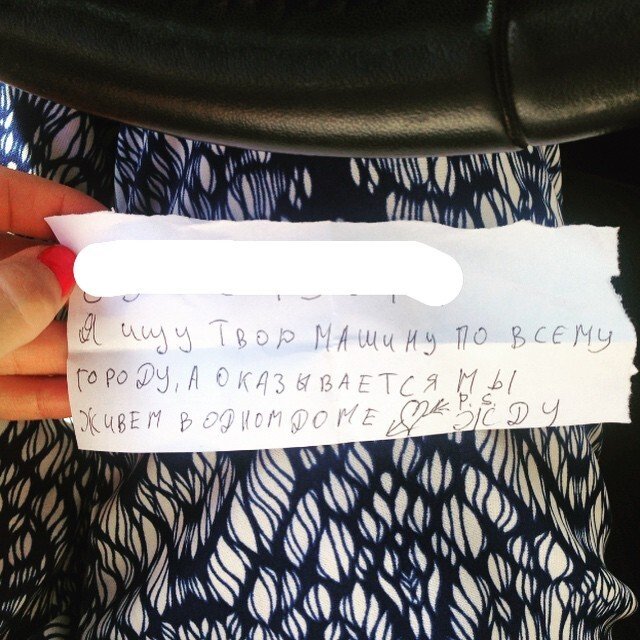 Я ищу твою машину по всему
городу, а оказывается мы
живем в одном доме P.S. Жду